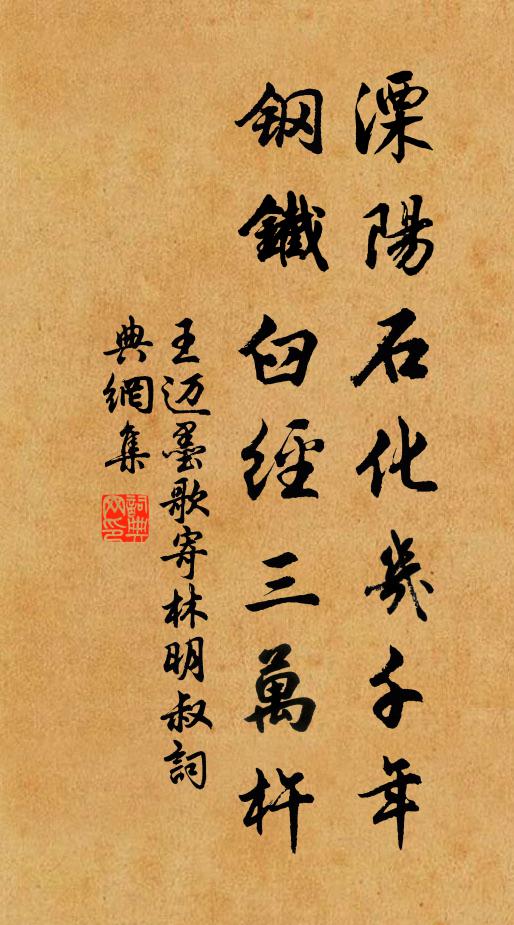 溧陽石化幾千年
鋼鐵臼經三萬杵
王迈墨歌寄林明叔詞
典網集
詞典網印